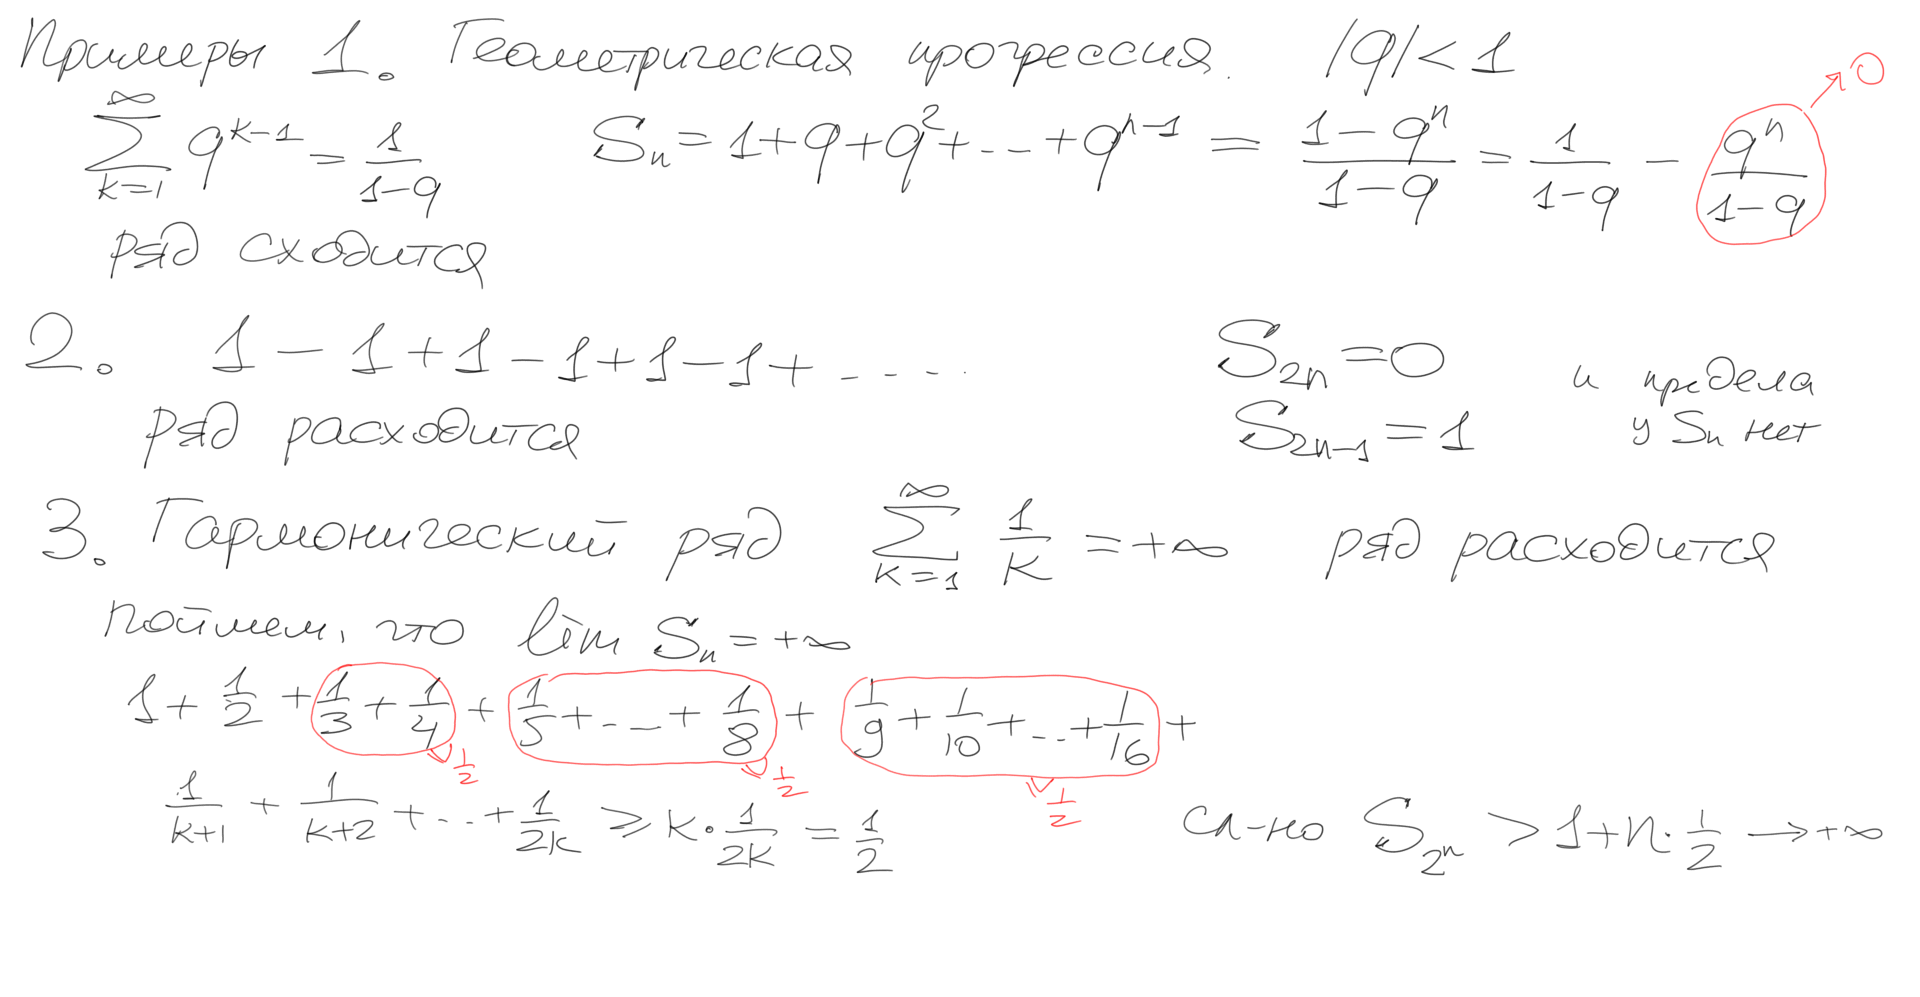 Примеры 1. Геометрическая прогрессия. |q|<1
∑_{k=1}^{∞} q^{k-1} = 1/(1-q) S_n = 1+q+q^2+...+q^{n-1} = (1-q^n)/(1-q) = 1/(1-q) - q^n/(1-q) → 0
ряд сходится
2. 1-1+1-1+1-1+.... S_{2n}=0 и предела
ряд расходится S_{2n-1}=1 у S_n нет
3. Гармонический ряд ∑_{k=1}^{∞} 1/k = +∞ ряд расходится
поймем, что lim S_n = +∞
1 + 1/2 + 1/3 + 1/4 + 1/5 + ... + 1/8 + 1/9 + 1/10 + ... + 1/16 +
∨ 1/2 ∨ 1/2 ∨ 1/2
1/(k+1) + 1/(k+2) + ... + 1/2k ⩾ k·1/2k = 1/2 сл-но S_{2^n} > 1+n·1/2 → +∞